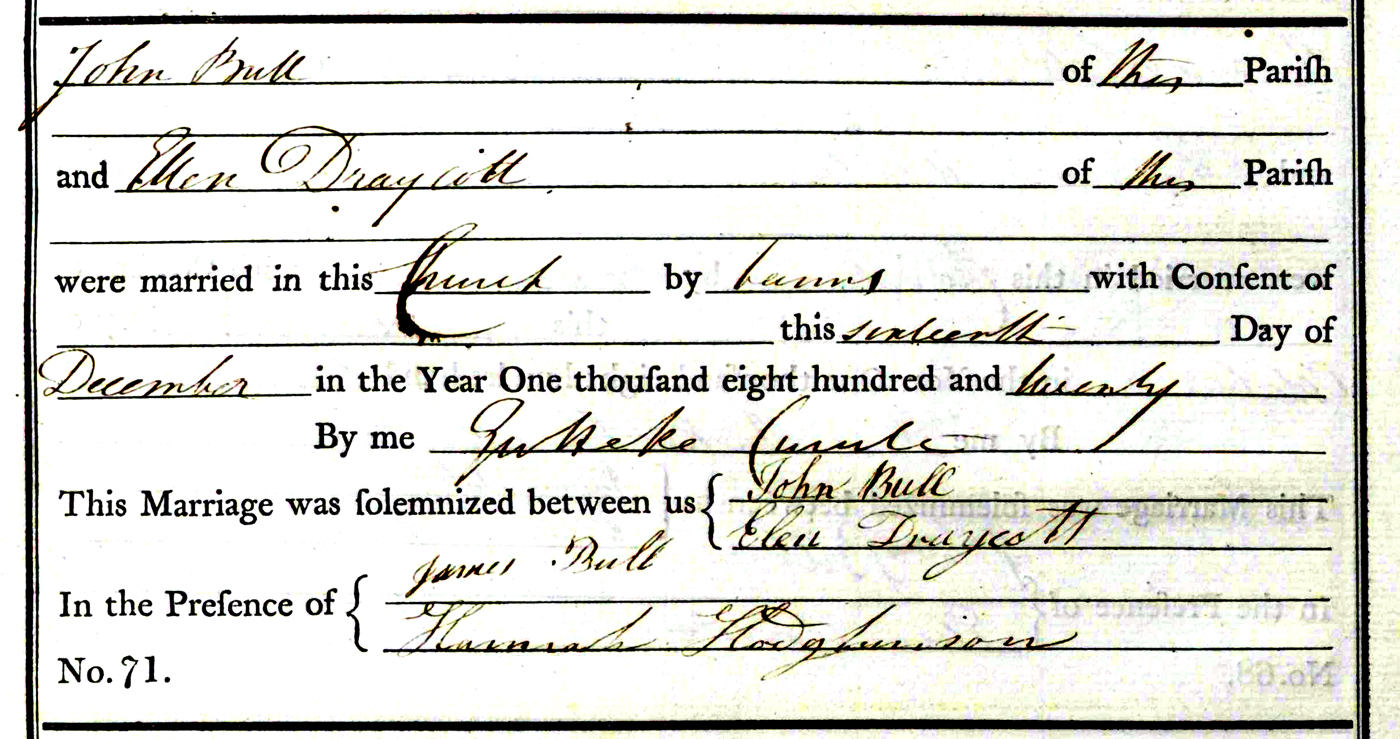 John Bull of this Pariſh
and Ellen Draycott of this Pariſh
were married in this Church by banns with Conſent of
this sixteenth Day of
December in the Year One thouſand eight hundred and twenty
By me Curate
This Marriage was ſolemnized between us { John Bull
Elen Draycott
In the Preſence of { James Bull
Hannah Hodghinson
No. 71.